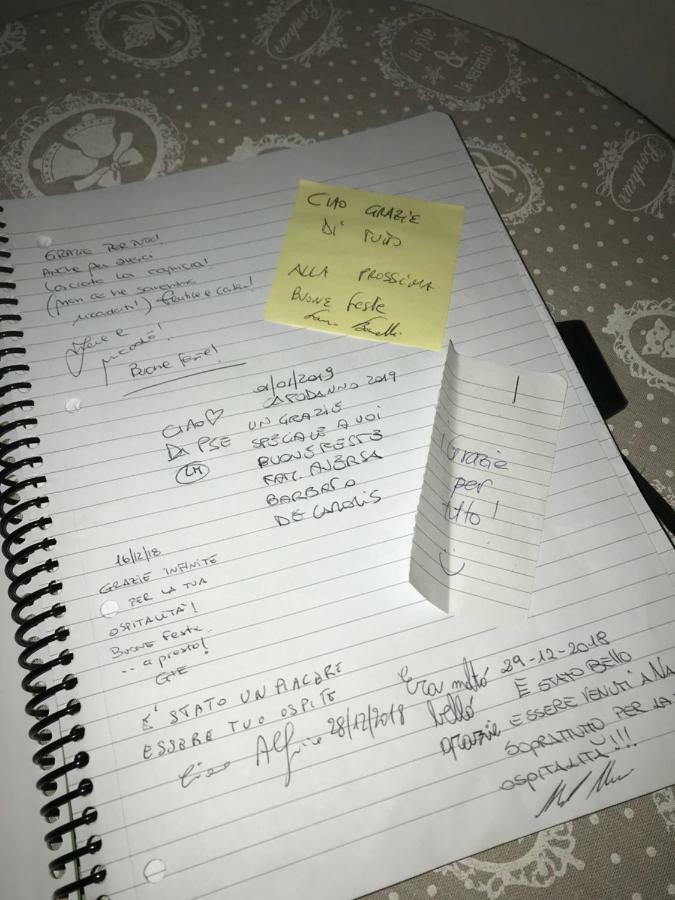 Bonheur
la joie
&
la sérénité
Bonheur
GRAZIE PER TUTTO!
Anche per averci
lasciato la
(non ce ne saremmo
Buone feste!
CIAO GRAZIE
DI TUTTO
ALLA PROSSIMA
BUONE feste
01/01/2019
CAPODANNO 2019
CIAO♡ UN GRAZIE
DA PSE SPECIALE A VOI
BUONE FESTE
FAM. AVERSA
BARBATO
DE CAROLIS
Grazie
per
tutto!
16/12/18
GRAZIE INFINITE
PER LA TUA
OSPITALITÀ!
BUONE feste
.. a presto!
E' STATO UN PIACERE
ESSERE TUO OSPITE
28/12/2018
Era molto
bello
grazie
29-12-2018
E STATO BELLO
ESSERE VENUTI A NA
SOPRATUTTO PER LA
OSPITALITÀ!!!